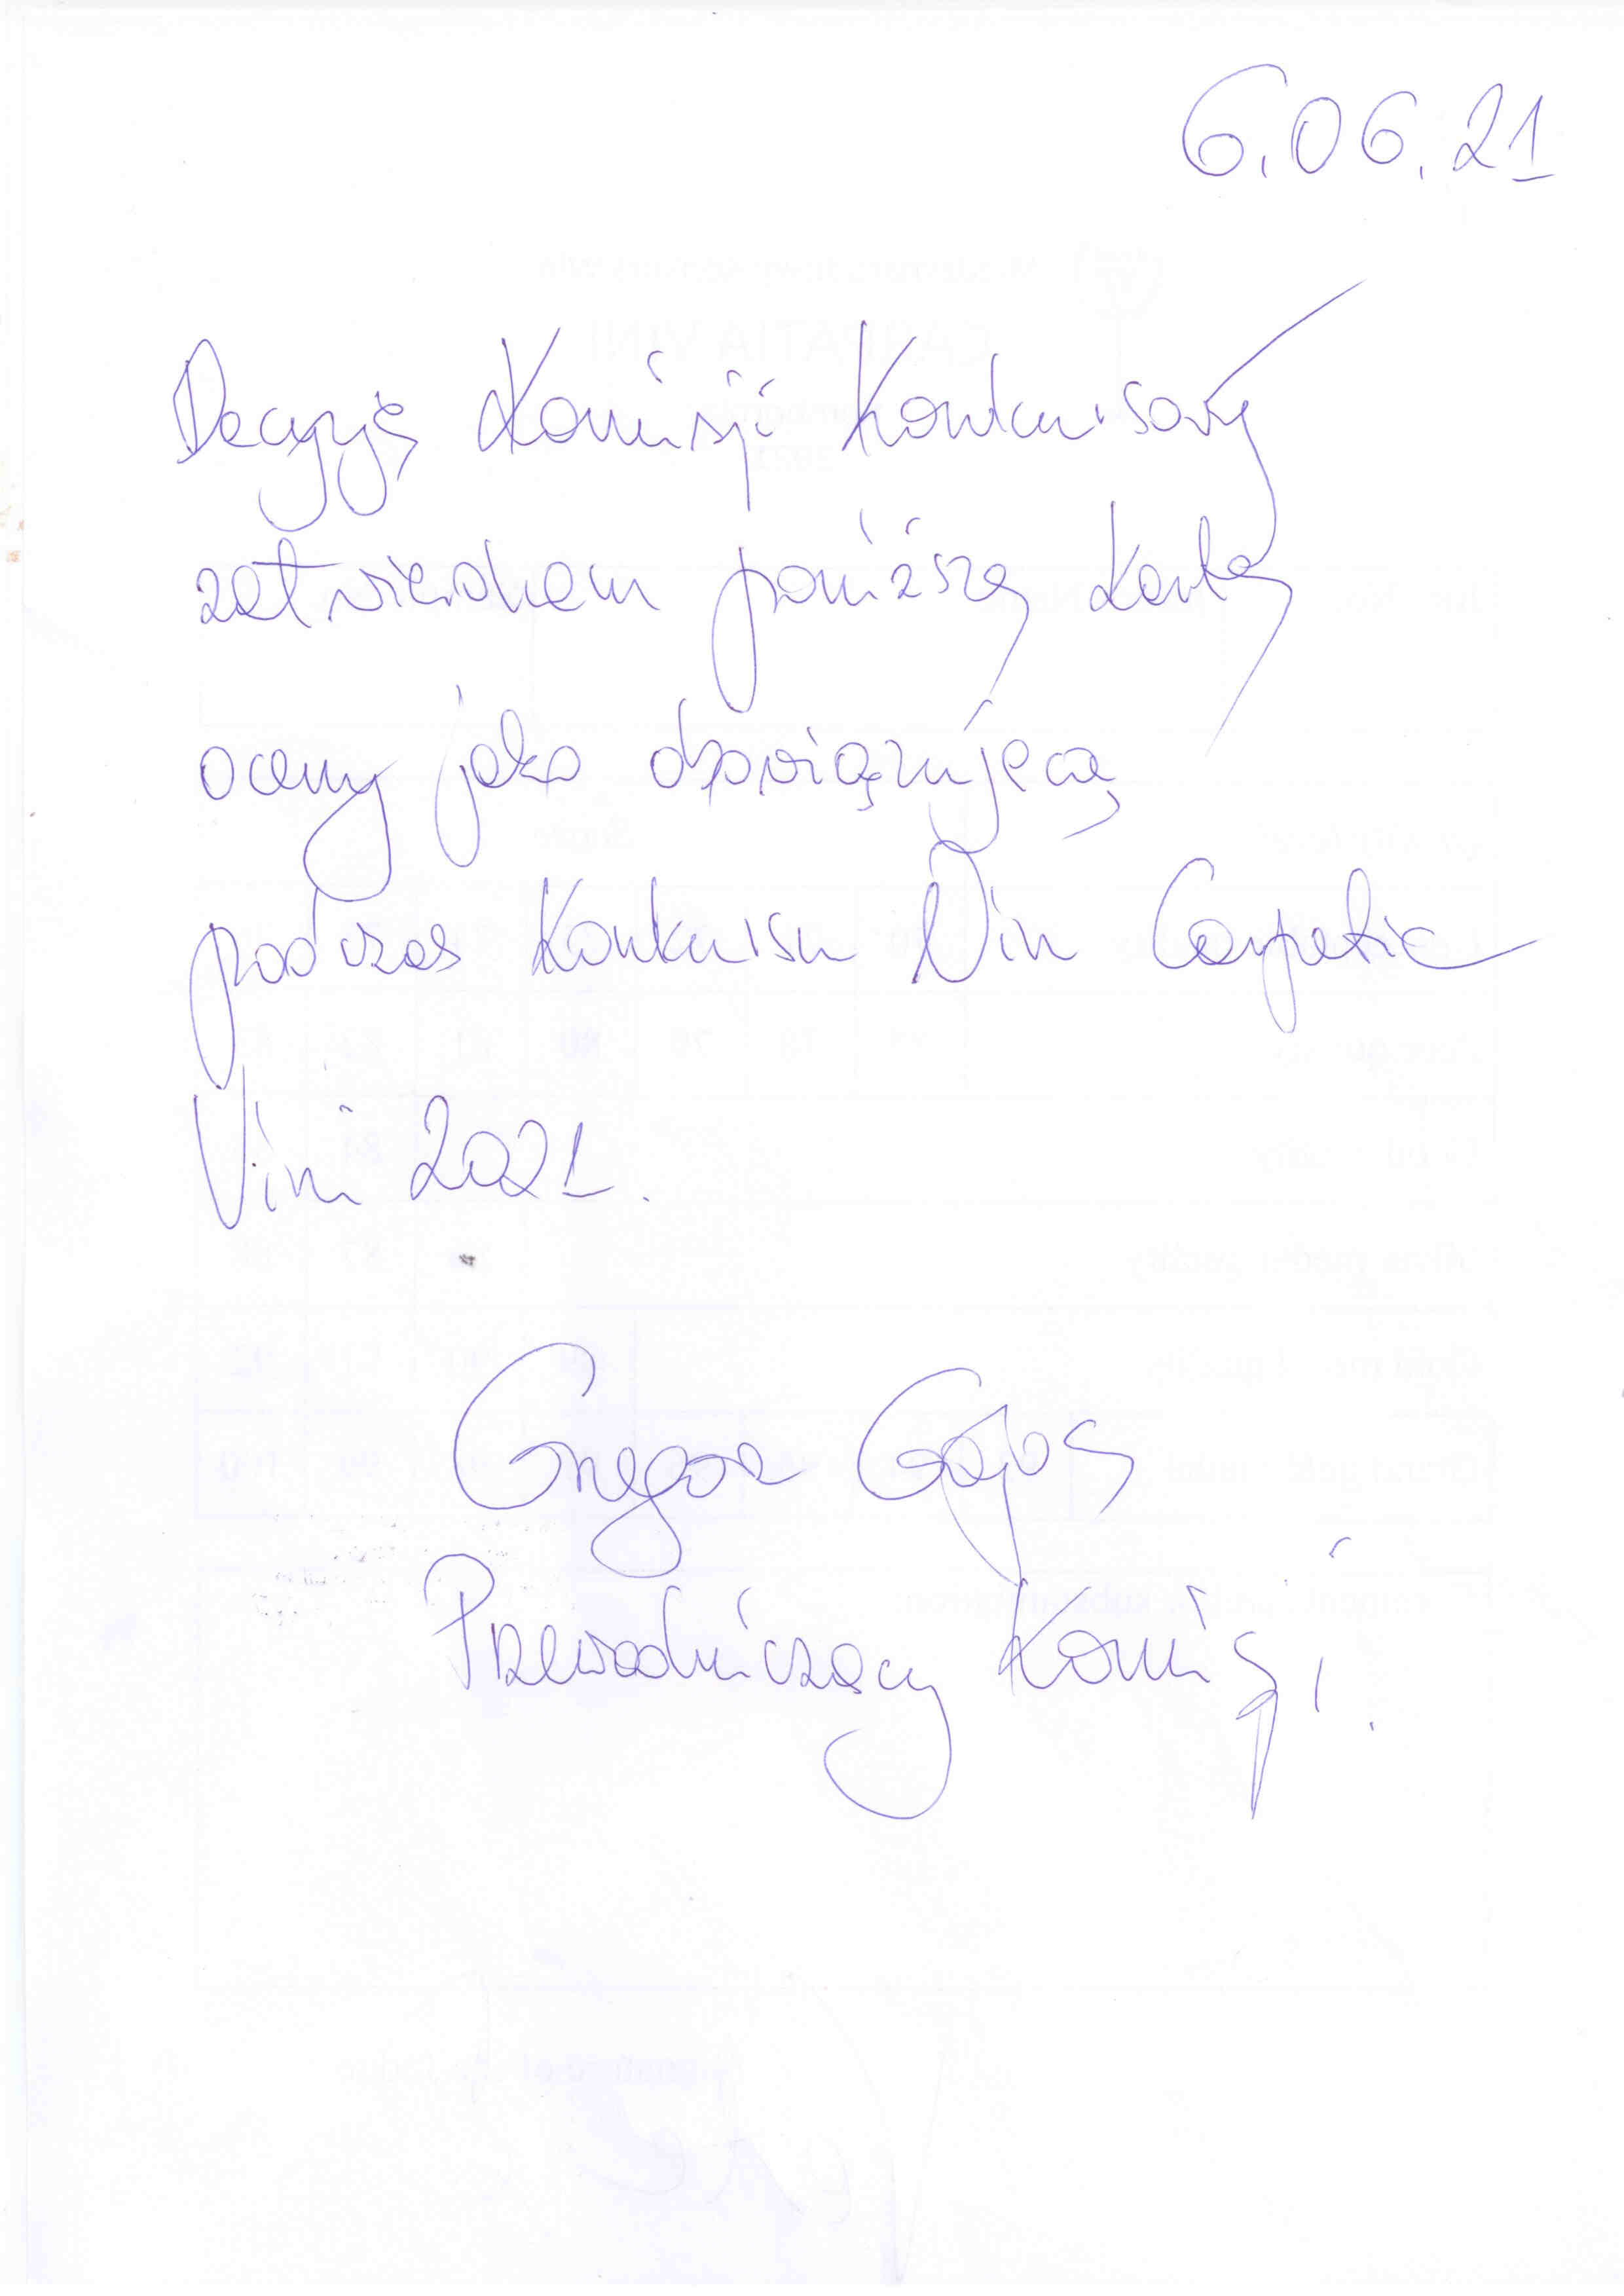 6.06.21
Decyzją Komisji Konkursowej
zatwierdzam poniższą kartę
oceny jako obowiązującą
podczas Konkursu Win Carpatia
Vini 2021.
Grzegorz Gajos
Przewodniczący Komisji.